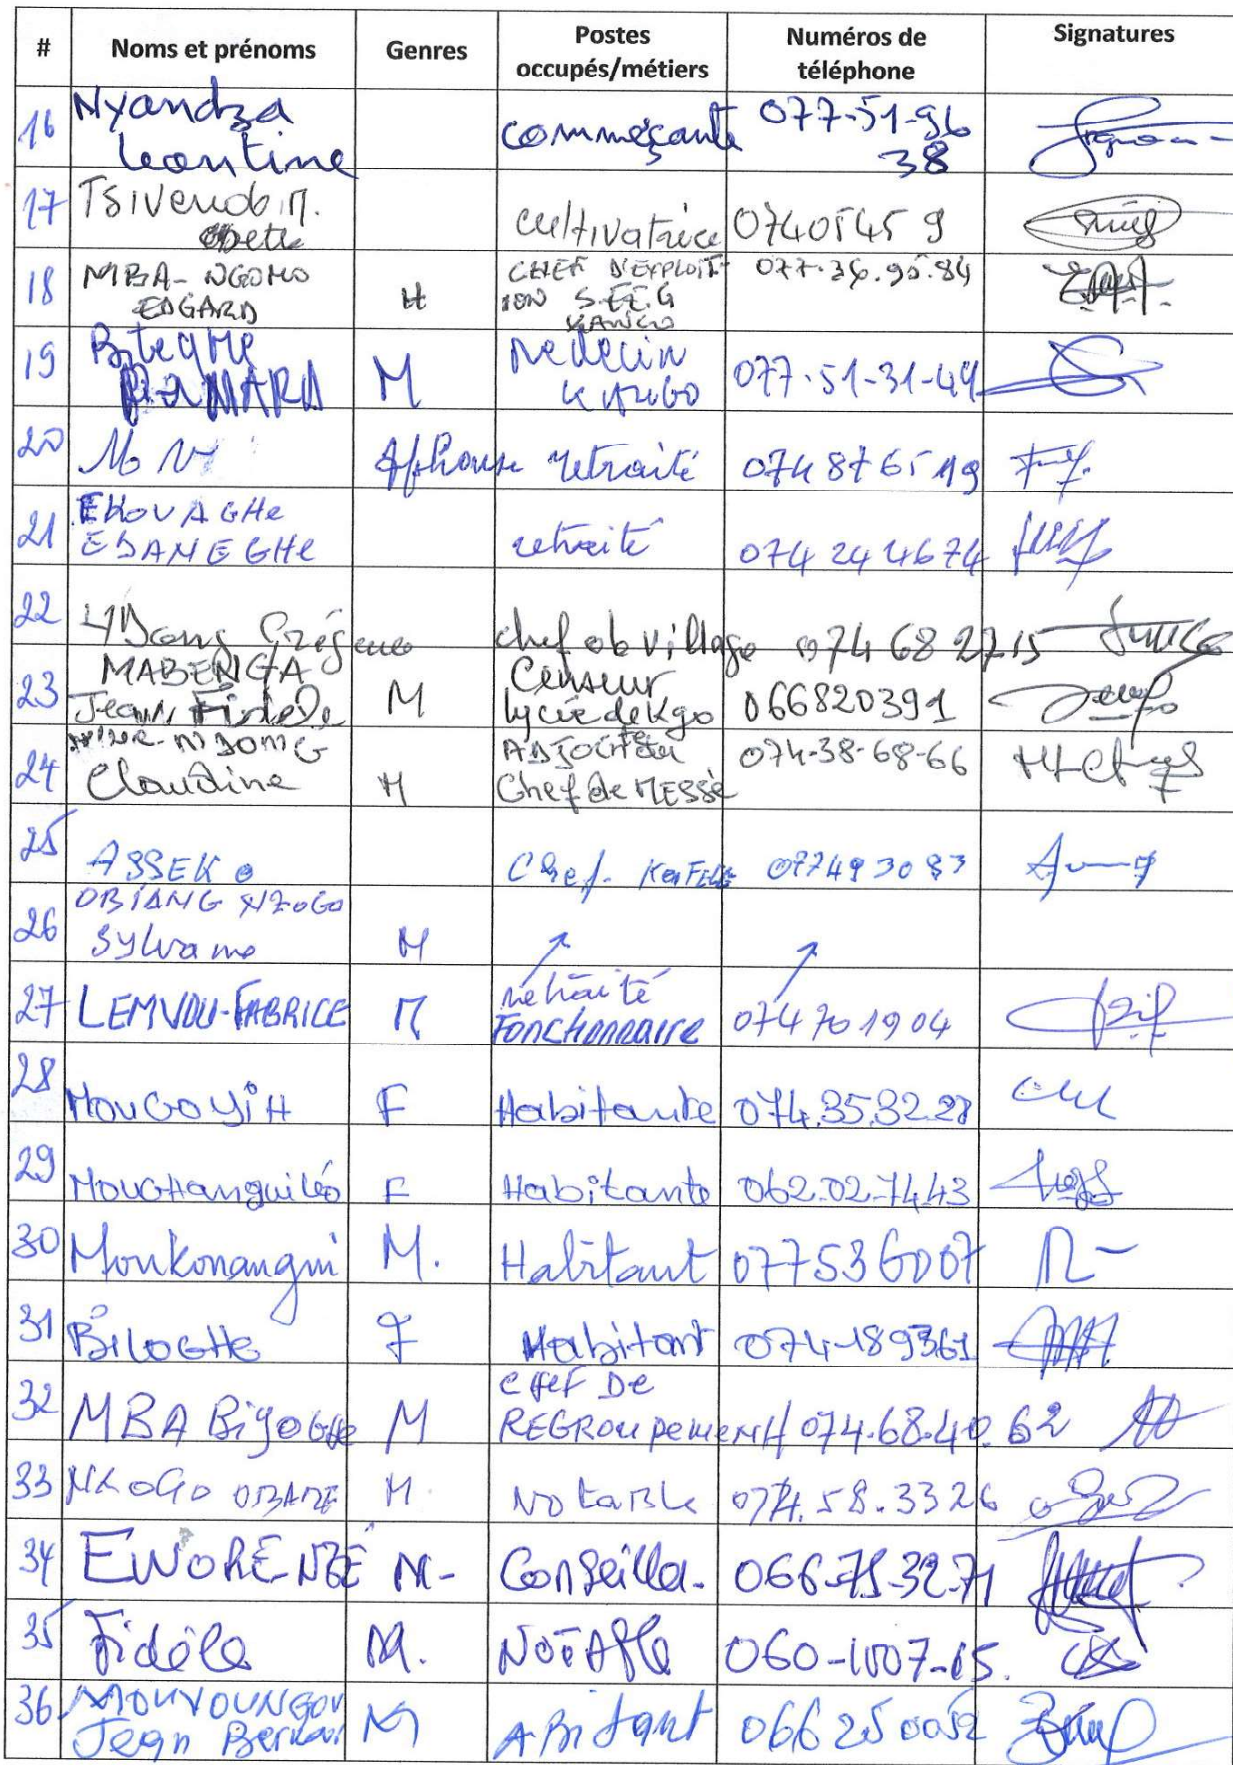 # Noms et prénoms Genres Postes occupés/métiers Numéros de téléphone Signatures
16 Nyandza Leontine commeçante 077-51-96 38
17 Tsivendo M. cultivatrice 07405459
18 MBA-NGOMO EDGARD H CHEF D'EXPLOIT- ION S.E.E.G KANGO 077.36.95.84
19 Biteghe M Medecin KANGO 077.51-31-49
20 Alphonse retraité 074876519
21 EKOUAGHe EDANEGHe retraité 0742444674
22 chef de village 074682715
23 MABENGA Jean Fidele M Censeur lycée de Kgo 066820391
24 Claudine M ADJOINTE du Chef de MESSE 074-38-68-66
25 ASSEKO Chef. 077493083
26 OBIANG NZOGO Sylvano M
27 LEMVOU-FABRICE M retraité Fonctionnaire 074701904
28 MouGoyiH F Habitante 074.35.32.28
29 MouGHanguiléo F Habitante 062.02.74.43
30 Moukonangui M. Habitant 077536007
31 BiloGHe F Habitant 074-189361
32 MBA BiyoGHe M CHEF DE REGROUPEMENT 074.68.40.62
33 NKOGO OBAME M. Notable 074.58.3326
34 M- Conseilla. 066-75-32-71
35 Fidéle M. Notable 060-1007-15.
36 MOUYOUNGOU Jean Bernar M Abitant 066250052